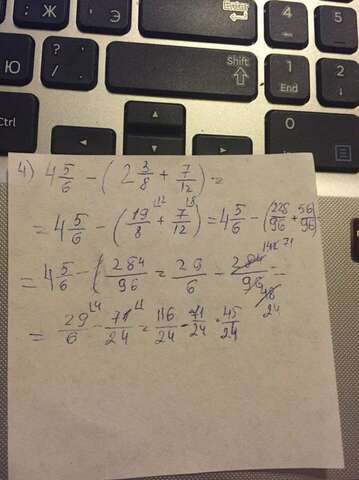 Ж
Э
Enter
4
5
Ю
?
/
Shift
1
End
2
Ctrl
0
4) 4 5/6 - (2 3/8 + 7/12) =
= 4 5/6 - (19/8 + 7/12) = 4 5/6 - (228/96 + 56/96)
= 4 5/6 - (284/96 = 29/6 - 284/96 =
= 29/6 - 71/24 = 116/24 - 71/24 = 45/24